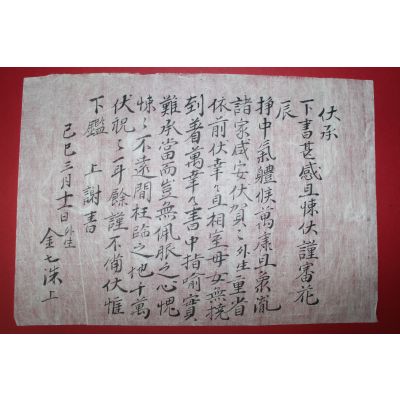 伏承
下書甚感且悚伏謹審花
辰
抻中氣體候萬康且泉胤
諸家咸安伏賀〻外生重省
依前伏幸〻自相室母女無撓
到着萬幸〻書中指喻實
難承當而豈無佩服之心愧
悚〻不遠間枉臨之地千萬
伏祝〻耳餘謹不備伏惟
下鑑 上謝書
己巳三月十一日 外生 金七洙上